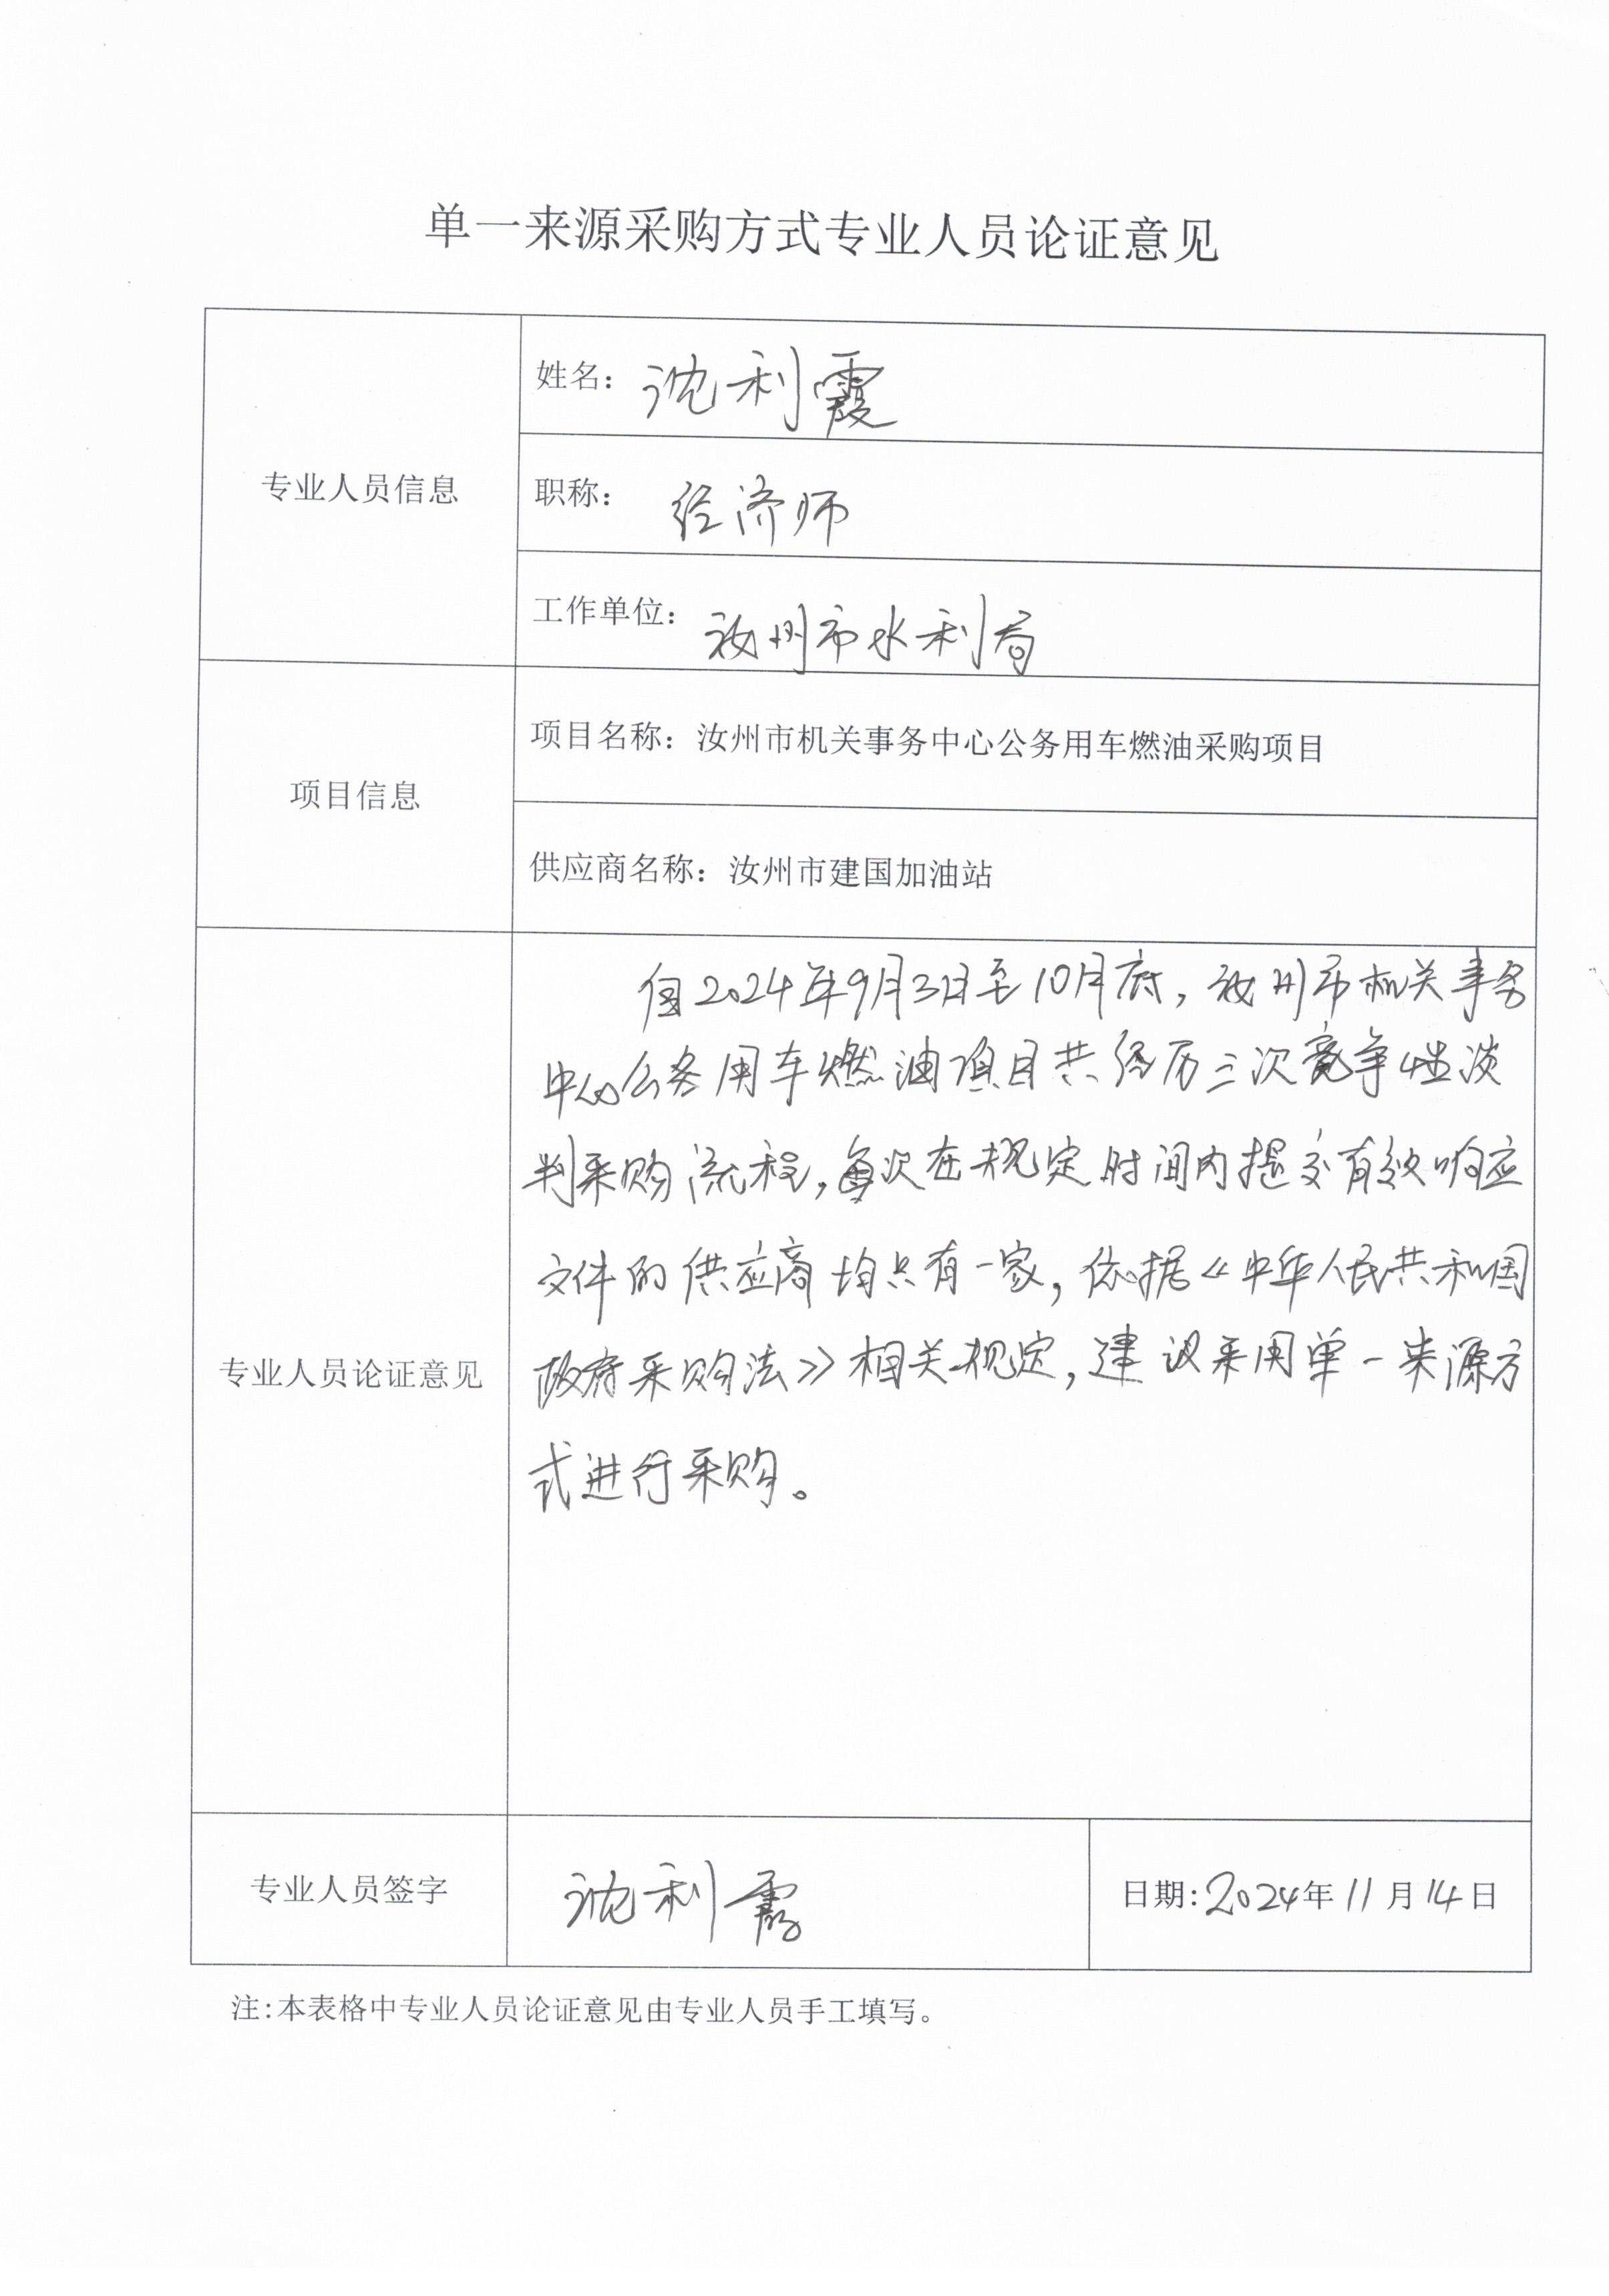 单一来源采购方式专业人员论证意见
专业人员信息
姓名：沈利霞
职称：经济师
工作单位：汝州市水利局
项目信息
项目名称：汝州市机关事务中心公务用车燃油采购项目
供应商名称：汝州市建国加油站
专业人员论证意见
自2024年9月3日至10月底，汝州市机关事务
中心公务用车燃油项目共经历三次竞争性谈
判采购流程，每次在规定时间内提交有效响应
文件的供应商均只有一家，依据《中华人民共和国
政府采购法》相关规定，建议采用单一来源方
式进行采购。
专业人员签字
沈利霞
日期：2024年11月14日
注：本表格中专业人员论证意见由专业人员手工填写。